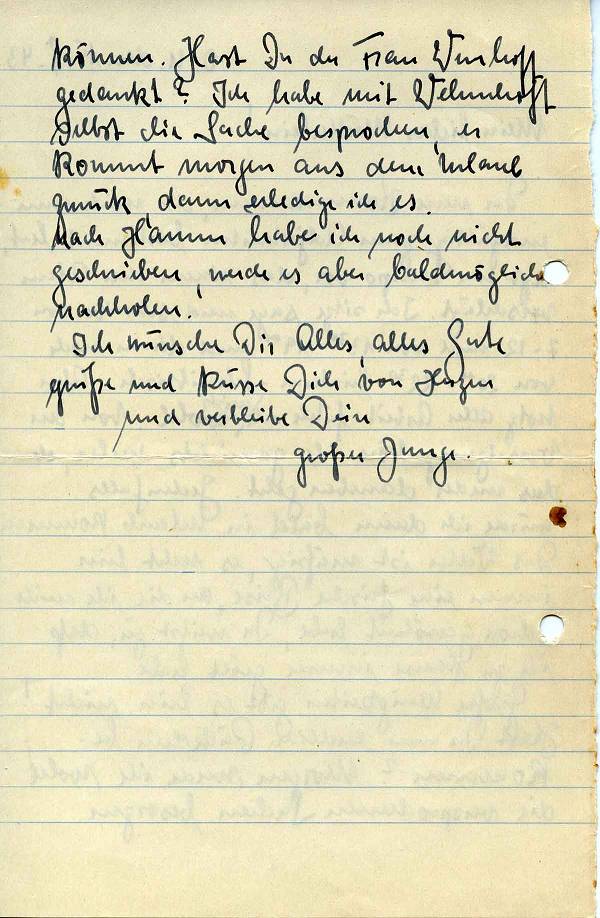 können. Hast Du der Frau
gedankt? Ich habe mit
selbst die Sache besprochen, er
kommt morgen aus dem Urlaub
zurück, dann erledige ich es.
Nach Hamm habe ich noch nicht
geschrieben, werde es aber baldmöglichst
nachholen.
Ich wünsche Dir Alles, alles Gute
grüße und küsse Dich von Herzen
und verbleibe Dein
großer Junge.